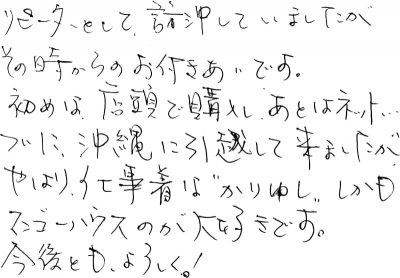 リピーターとして、訪沖していましたが
その時からのお付きあいです。
初めは、店頭で購入し、あとはネット…
ついに、沖縄に引越して来ましたが、
やはり、仕事着は“かりゆし„しかも
マンゴーハウスのが大好きです。
今後とも、よろしく!